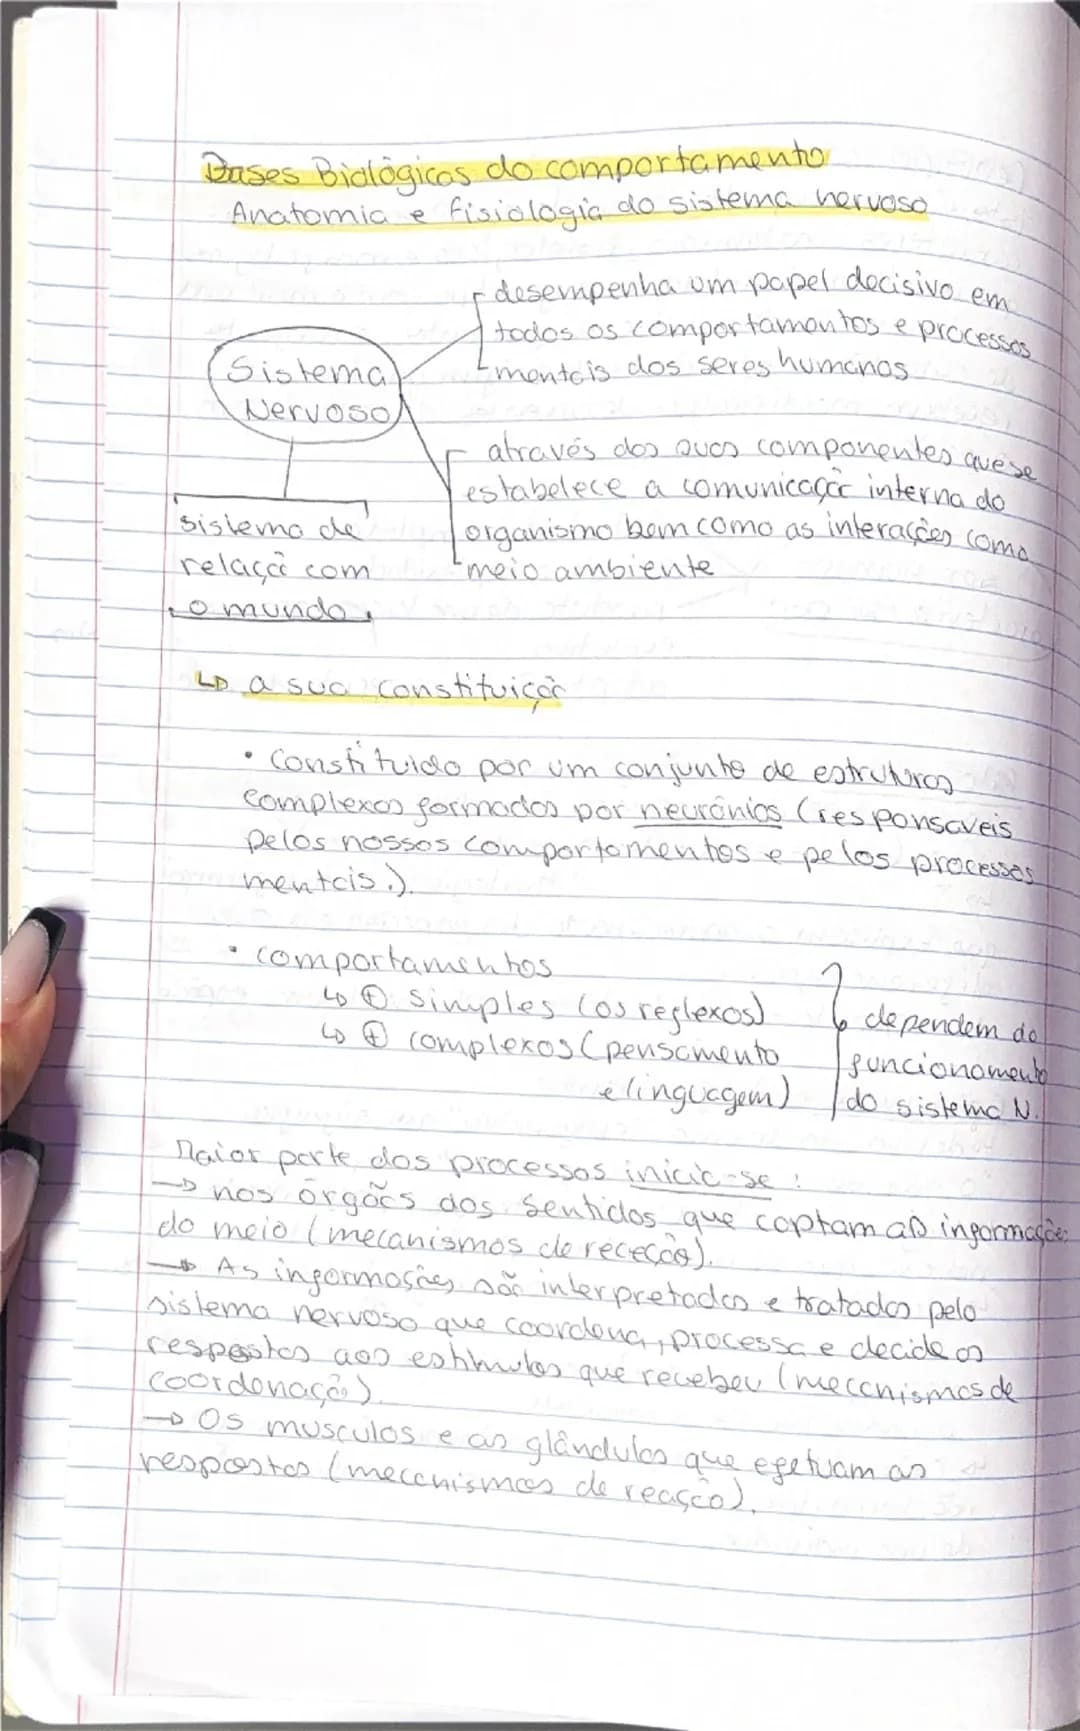 Bases Biológicas do comportamento
Anatomia e fisiologia do sistema nervoso
desempenha um papel decisivo em
todos os comportamentos e processos
mentais dos seres humanos
Sistema
Nervoso
através dos suas componentes que se
estabelece a comunicação interna do
organismo bem como as interações com o
meio ambiente
sistema de
relação com
o mundo
↳ a sua constituição
• Constituido por um conjunto de estruturas
complexas formados por neurónios (responsaveis
pelos nossos comportamentos e pelos processos
mentais.).
• comportamentos
↳ ⊕ simples (os reflexos)
↳ ⊕ complexos (pensamento
e linguagem)
dependem do
funcionamento
do sistema N.
Maior parte dos processos inicia-se :
→ nos órgãos dos sentidos que captam as informações
do meio (mecanismos de receção).
→ As informações são interpretadas e tratadas pelo
sistema nervoso que coordena, processa e decide as
respostas aos estimulos que recebeu (mecanismos de
coordenação).
→ Os musculos e as glândulas que efetuam as
respostas (mecanismos de reação).